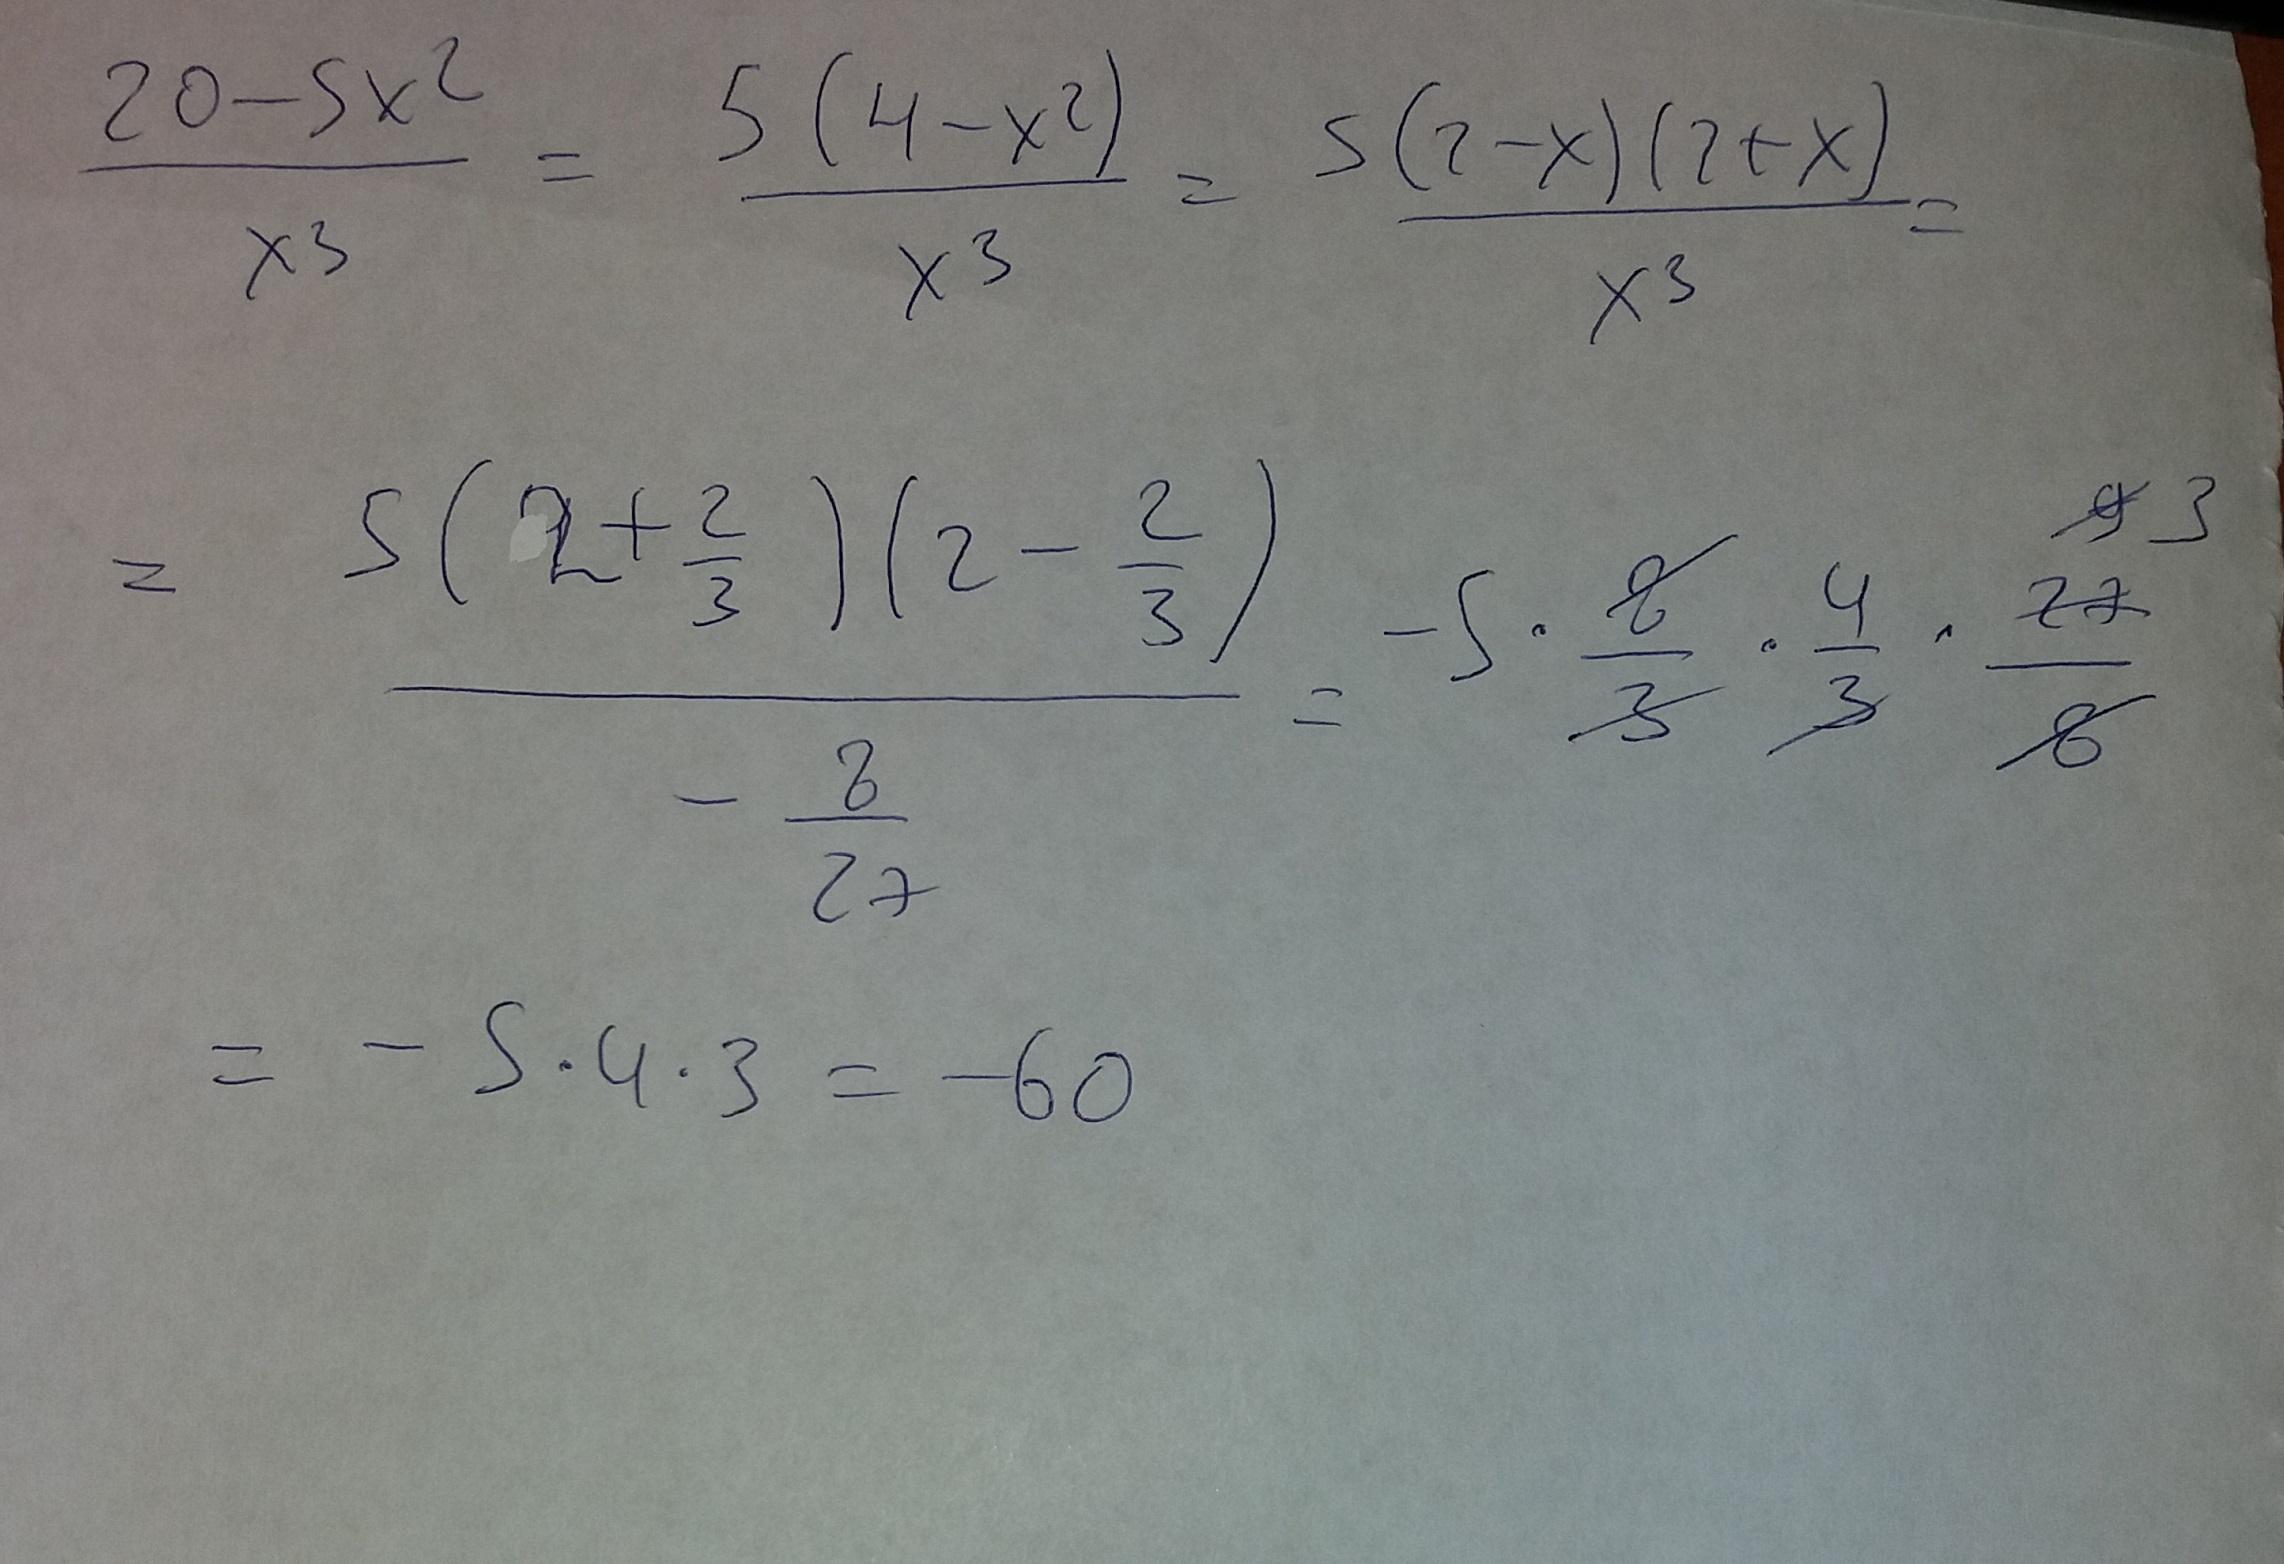 20-5x²/x³ = 5(4-x²)/x³ = 5(2-x)(2+x)/x³ =
= 5(2+2/3)(2-2/3)/-8/27 = -5·8/3·4/3·27/8 9 3
= -5·4·3 = -60